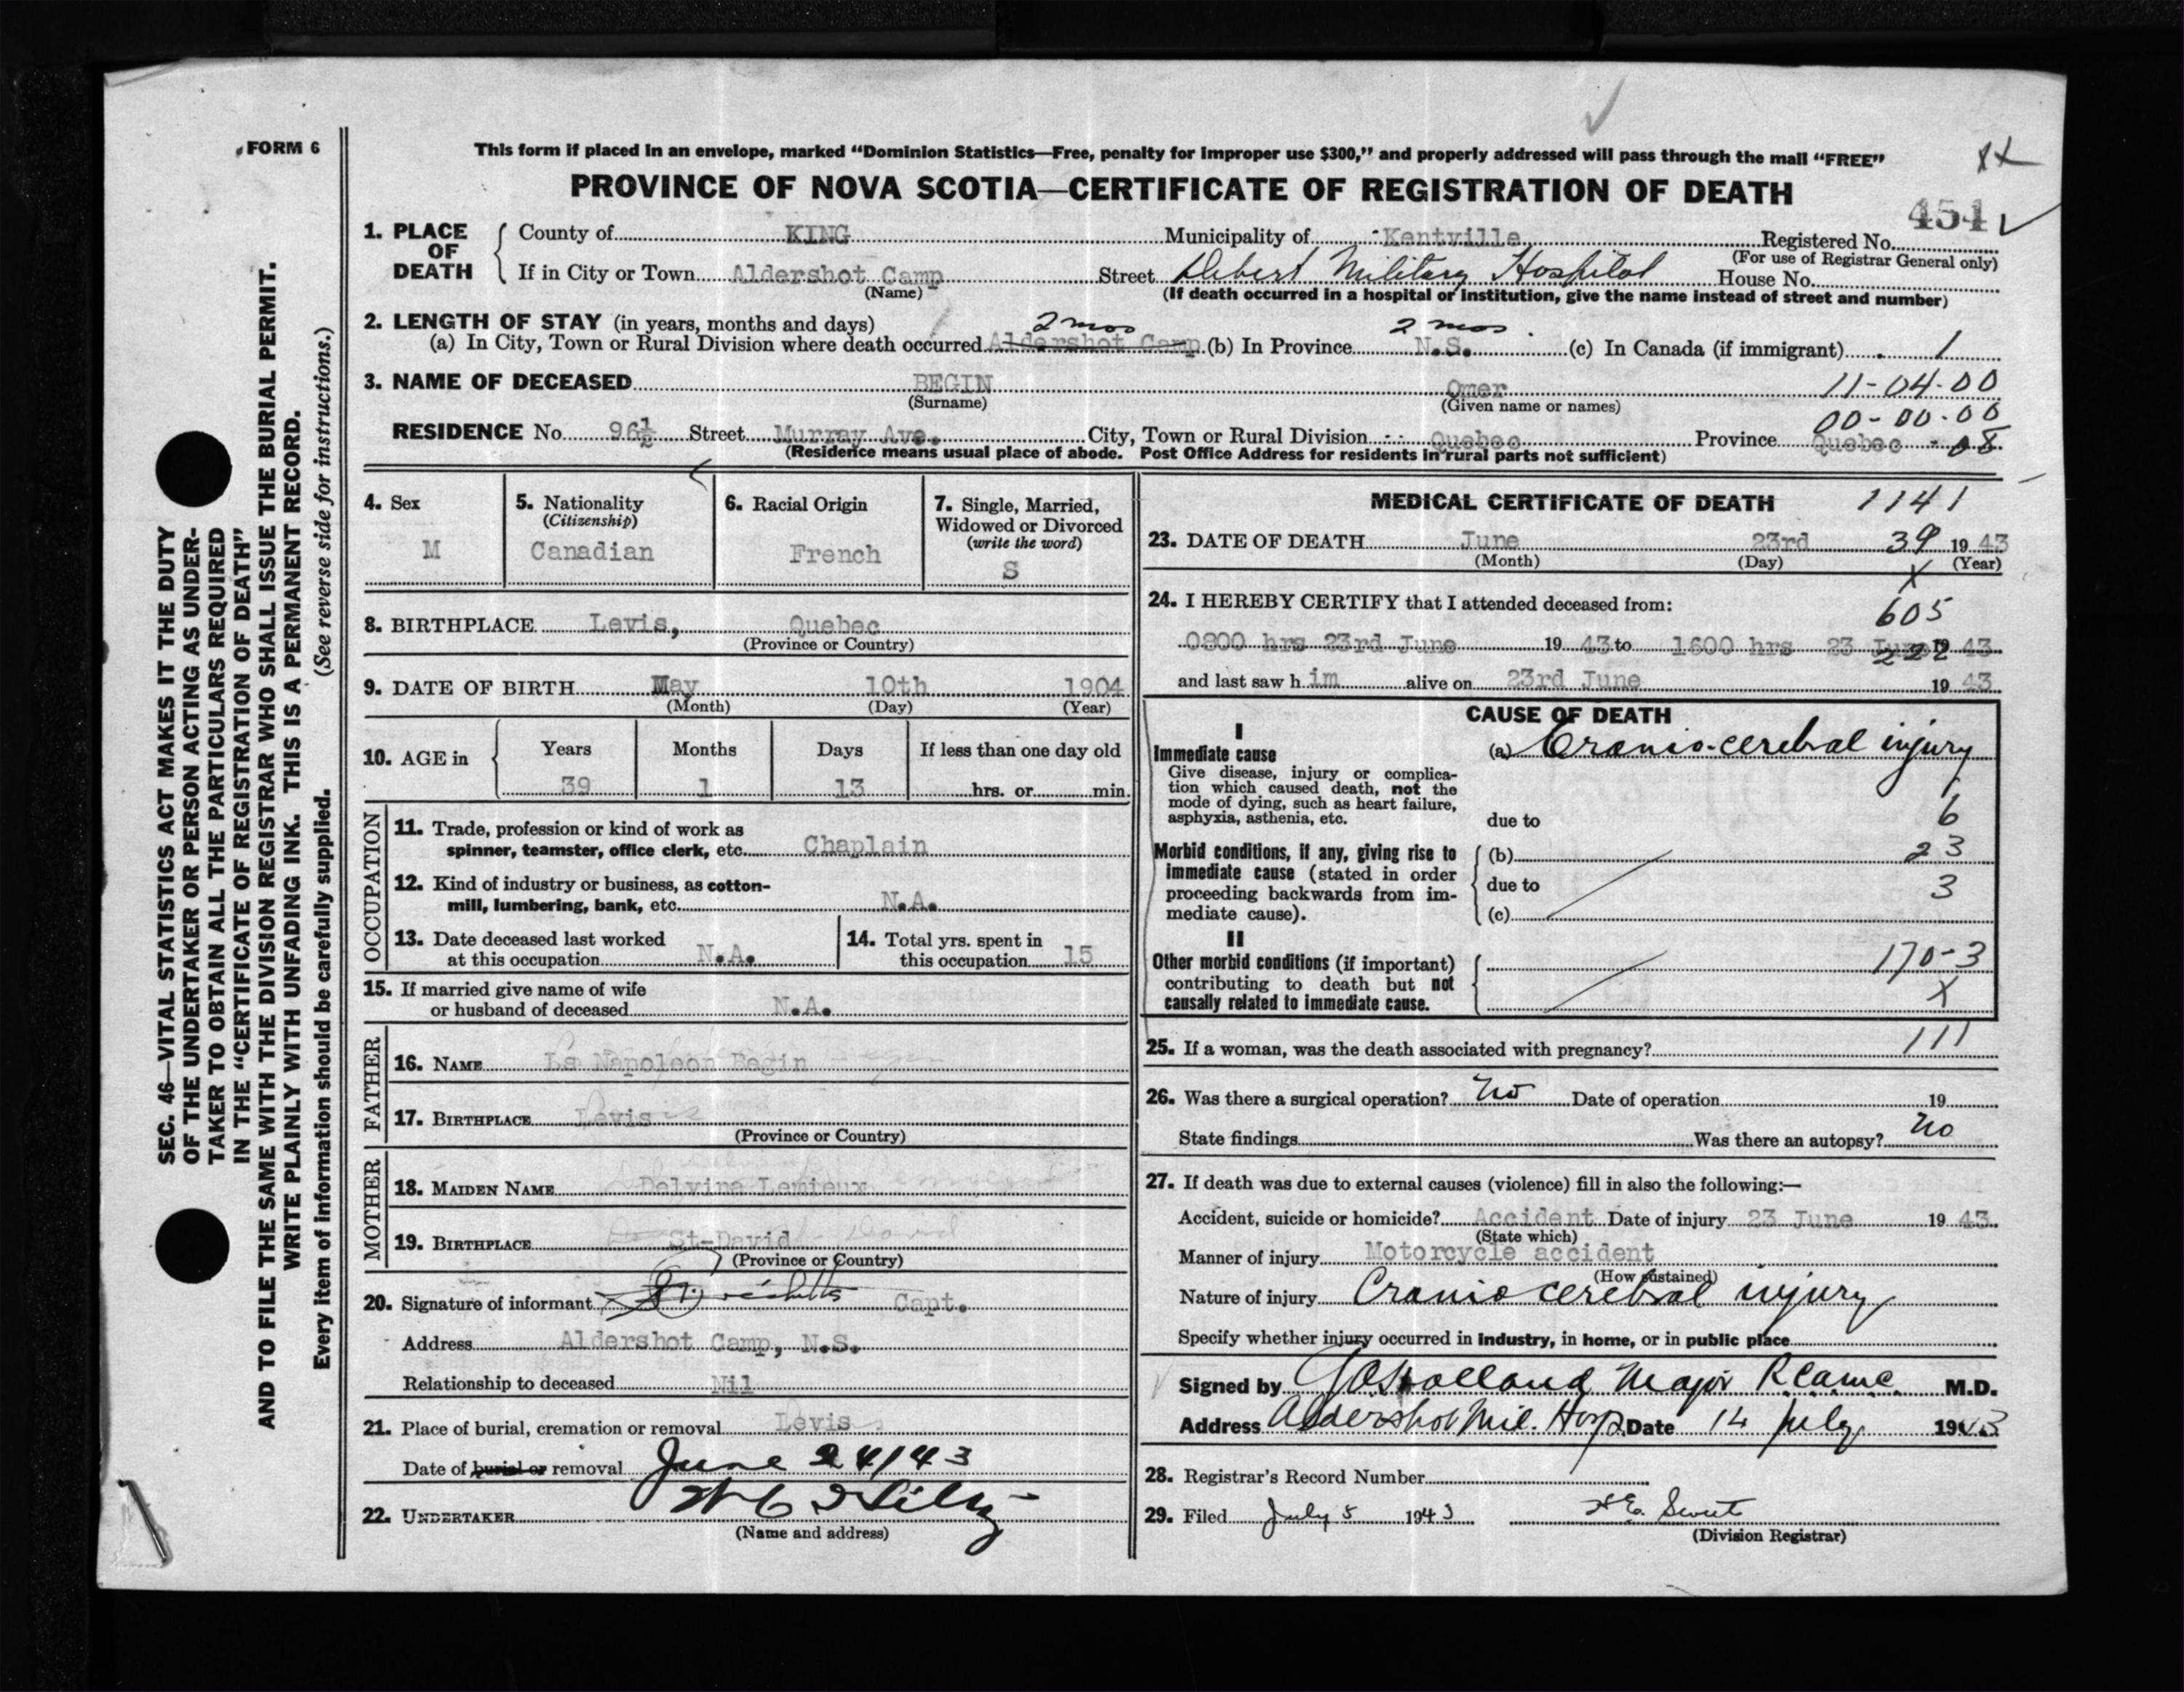 FORM 6
SEC. 46—VITAL STATISTICS ACT MAKES IT THE DUTY
OF THE UNDERTAKER OR PERSON ACTING AS UNDER-
TAKER TO OBTAIN ALL THE PARTICULARS REQUIRED
IN THE "CERTIFICATE OF REGISTRATION OF DEATH"
AND TO FILE THE SAME WITH THE DIVISION REGISTRAR WHO SHALL ISSUE THE BURIAL PERMIT.
WRITE PLAINLY WITH UNFADING INK. THIS IS A PERMANENT RECORD.
Every item of information should be carefully supplied. (See reverse side for instructions.)
This form if placed in an envelope, marked "Dominion Statistics—Free, penalty for improper use $300," and properly addressed will pass through the mail "FREE"
PROVINCE OF NOVA SCOTIA—CERTIFICATE OF REGISTRATION OF DEATH
454
1. PLACE OF DEATH County of KING Municipality of Kentville Registered No.
(For use of Registrar General only)
If in City or Town Aldershot Camp Street Debert Military Hospital House No.
(Name) (If death occurred in a hospital or institution, give the name instead of street and number)
2. LENGTH OF STAY (in years, months and days) 2 mos 2 mos.
(a) In City, Town or Rural Division where death occurred Aldershot Camp (b) In Province N.S. (c) In Canada (if immigrant) 1
3. NAME OF DECEASED BEGIN Omer 11-04-00
(Surname) (Given name or names)
00-00-00
RESIDENCE No. 96½ Street Murray Ave. City, Town or Rural Division Quebec Province Quebec - 08
(Residence means usual place of abode. Post Office Address for residents in rural parts not sufficient)
4. Sex M
5. Nationality (Citizenship) Canadian
6. Racial Origin French
7. Single, Married, Widowed or Divorced (write the word) S
8. BIRTHPLACE Levis, Quebec
(Province or Country)
9. DATE OF BIRTH May 10th 1904
(Month) (Day) (Year)
10. AGE in Years Months Days If less than one day old
39 1 13 hrs. or min.
OCCUPATION
11. Trade, profession or kind of work as
spinner, teamster, office clerk, etc. Chaplain
12. Kind of industry or business, as cotton-
mill, lumbering, bank, etc. N.A.
13. Date deceased last worked
at this occupation N.A.
14. Total yrs. spent in
this occupation 15
15. If married give name of wife
or husband of deceased N.A.
FATHER
16. NAME Ls Napoleon Begin
17. BIRTHPLACE Levis
(Province or Country)
MOTHER
18. MAIDEN NAME Delvina Lemieux
19. BIRTHPLACE St-David
(Province or Country)
20. Signature of informant Capt.
Address Aldershot Camp, N.S.
Relationship to deceased Nil
21. Place of burial, cremation or removal Levis
Date of burial or removal June 24/43
22. UNDERTAKER
(Name and address)
MEDICAL CERTIFICATE OF DEATH 1141
23. DATE OF DEATH June 23rd 39 19 43
(Month) (Day) X (Year)
24. I HEREBY CERTIFY that I attended deceased from: 605
0800 hrs 23rd June 19 43 to 1600 hrs 23 June 19 43
222
and last saw h im alive on 23rd June 19 43
CAUSE OF DEATH
I
Immediate cause (a) Cranio-cerebral injury
Give disease, injury or complica-
tion which caused death, not the
mode of dying, such as heart failure,
asphyxia, asthenia, etc. due to 6
Morbid conditions, if any, giving rise to (b) 23
immediate cause (stated in order due to 3
proceeding backwards from im-
mediate cause). (c)
II
Other morbid conditions (if important) 170-3
contributing to death but not X
causally related to immediate cause.
25. If a woman, was the death associated with pregnancy? 111
26. Was there a surgical operation? No Date of operation 19
State findings Was there an autopsy? No
27. If death was due to external causes (violence) fill in also the following:—
Accident, suicide or homicide? Accident Date of injury 23 June 19 43
(State which)
Manner of injury Motorcycle accident
(How sustained)
Nature of injury Cranio cerebral injury
Specify whether injury occurred in industry, in home, or in public place
Signed by Holland Major RCAMC M.D.
Address Aldershot Mil. Hosp Date 14 July 1943
28. Registrar's Record Number
29. Filed July 5 1943
(Division Registrar)